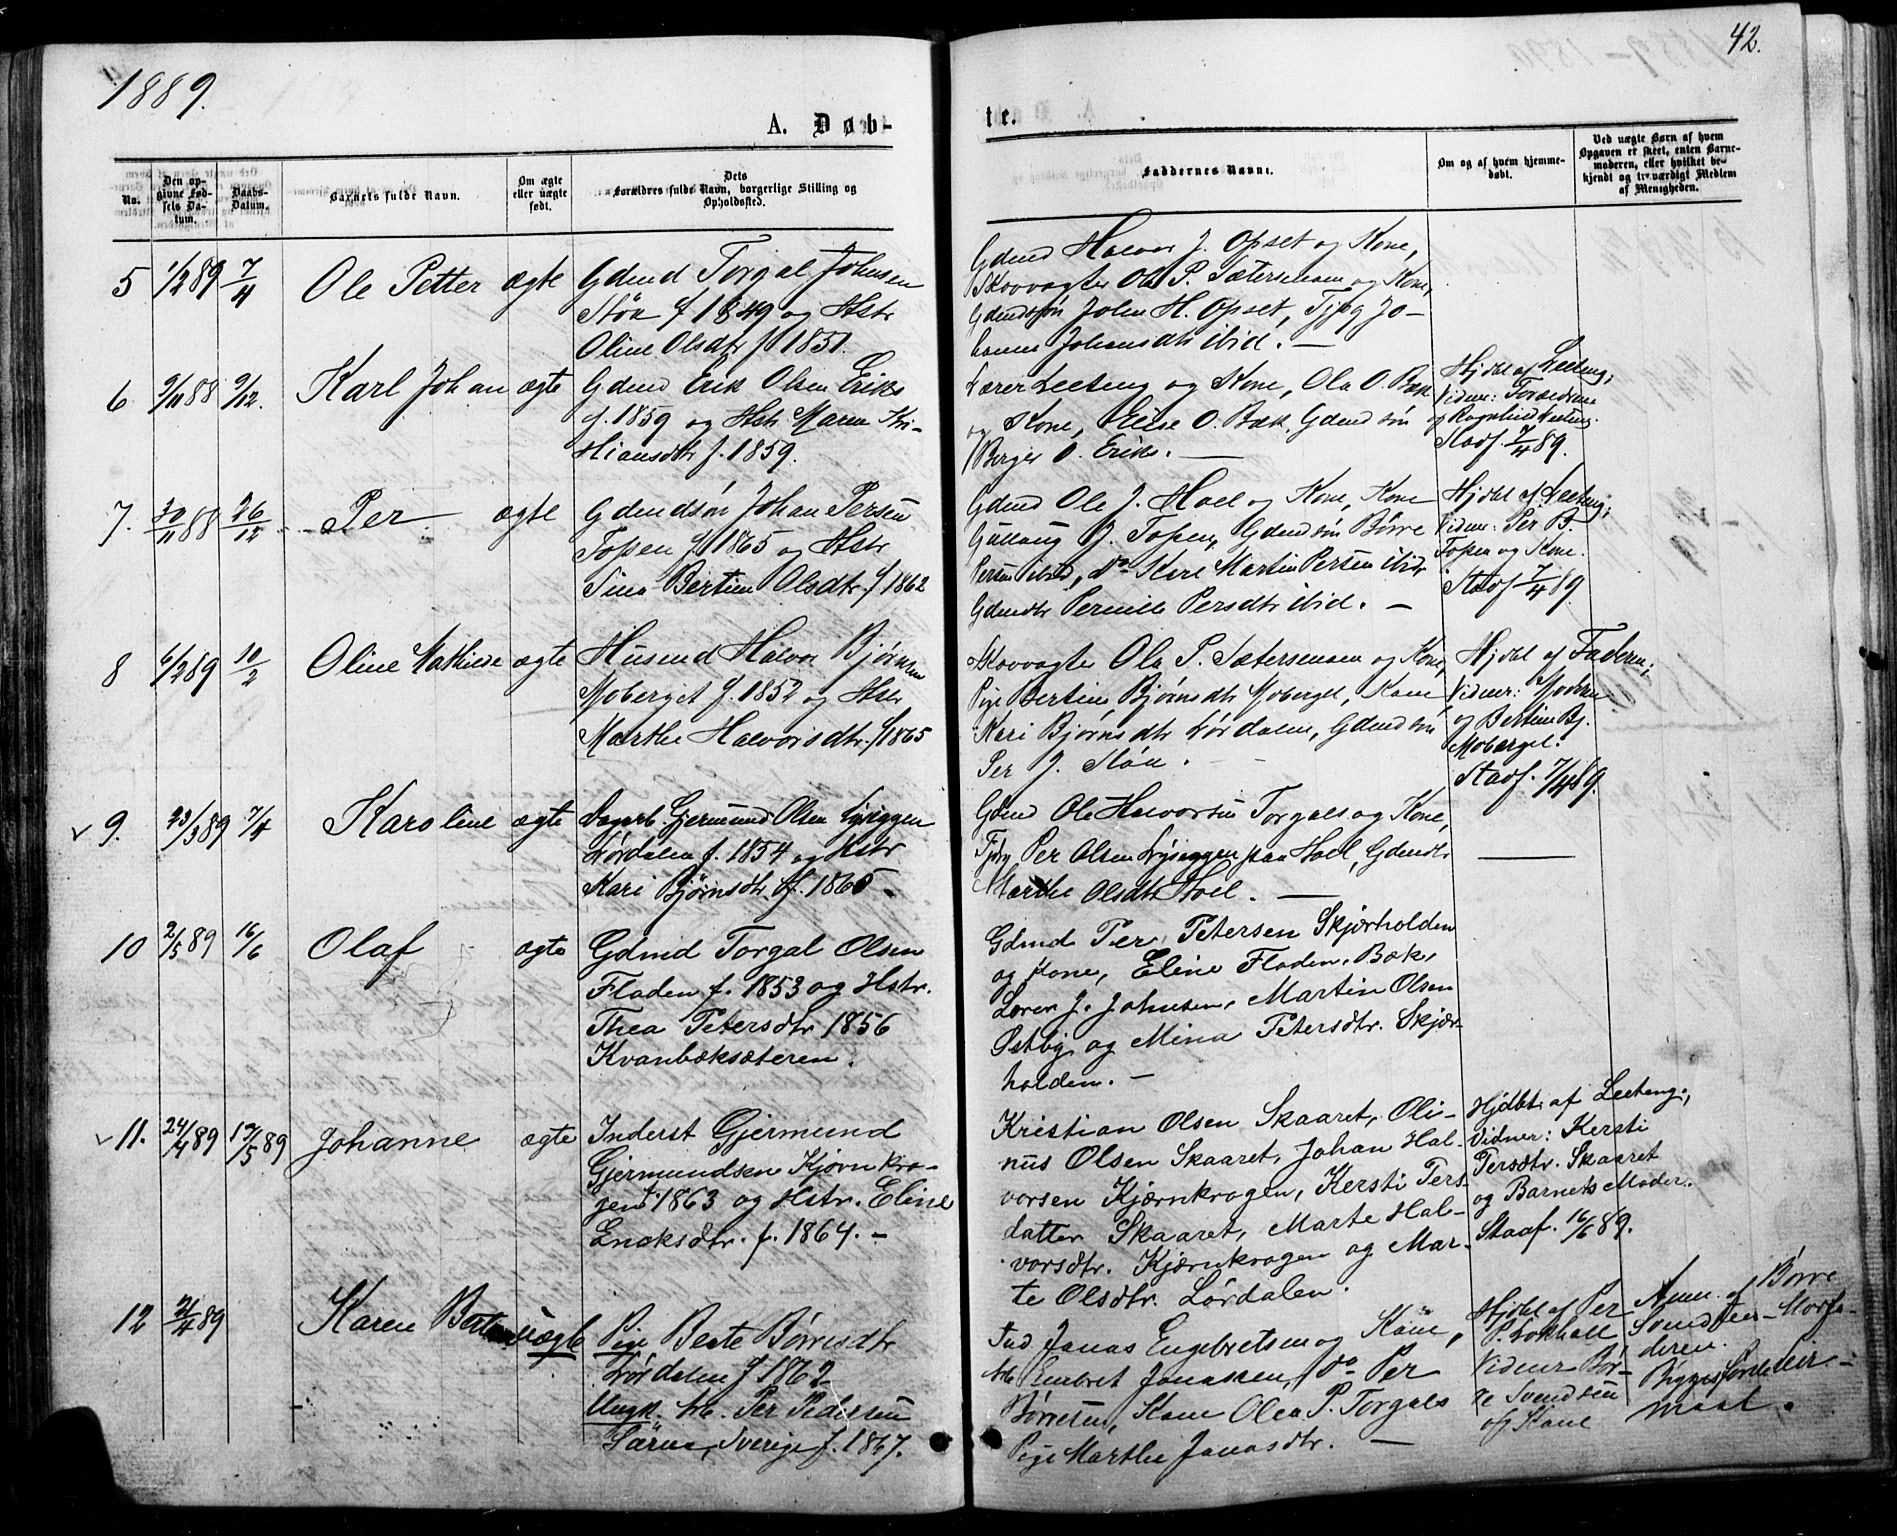 1889.
42.
A. Døb-
te.
No.
Den op-
givne Fød-
sels Da-
tum.
Daabs-
Datum.
Barnets fulde Navn.
Om ægte
eller uægte
født.
Dets
Forældres fulde Navn, borgerlige Stilling og
Opholdssted.
Faddernes Navne.
Om og af hvem hjemme-
døbt.
Ved uægte Børn af hvem
Opgaven er skeet, enten Barne-
moderen, eller hvilket be-
kjendt og troværdigt Medlem
af Menigheden.
5 1/2 89 7/4 Ole Petter ægte
Gdmd Torgal Johnsen
Støa f 1849 og Hstr
Oline Olsdtr f 1851.
Gdmd Halvor J. Opset og Kone,
Skovvogter Ola P. Sætersmoen og Kone,
Gdmdsøn John H. Opset, Tjpg Jo-
hanne Johansdtr ibid. —
6 9/11 88 9/12. Karl Johan ægte
Gdmd Erik Olsen Eriks
f. 1859 og Hstr Maren Kri-
stiansdtr f. 1859.
Lærer Leeteng og Kone, Ola O. Bæk
og Kone, Elise O. Bæk, Gdmdsøn
Berger O. Eriks. —
Hjdbt af Leeteng;
Vidner: Forældrene
og Ragnhild Leeteng.
Stadf. 7/4 89.
7. 30/11 88 26/12 Per ægte
Gdmdsøn Johan Persen
Topen f 1865 og Hstr
Sina Bertine Olsdtr. f 1862
Gdmd Ole J. Hoel og Kone, Kone
Gullaug J. Topen, Gdmdsøn Børre
Persen ibid, do Karl Martin Persen ibid,
Gdmdtr Pernille Persdtr ibid. —
Hjdbt af Leeteng;
Vidner: Per B.
Topen og Kone.
Stadf 7/4 89.
8 6/2 89 10/2 Oline Mathilde ægte
Husmd Halvor Bjørnsen
Moberget f. 1852 og Hstr
Marthe Halvorsdtr. f 1865
Skovvogter Ola P. Sætersmoen og Kone,
Pige Bertine Bjørnsdtr Moberget, Kone
Kari Bjørnsdtr Lørdalen, Gdmdsøn
Per J. Støa.
Hjdbt af Faderen;
Vidner: Moderen
og Bertine Bj.
Moberget.
Stadf. 7/4 89.
9. 23/3 89 7/4 Karoline ægte
Dagarb. Gjermund Olsen Lyseggen
Lørdalen f. 1854 og Hstr
Kari Bjørnsdtr. f. 1865.
Gdmd Ole Halvorsen Torgals og Kone,
Tjdrg Per Olsen Lyseggen paa Hoel, Gdmdtr
Marthe Olsdtr Hoel. —
10 2/5 89 16/6 Olaf ægte
Gdmd Torgal Olsen
Fladen f. 1853 og Hstr.
Thea Petersdtr. 1856
Kvanbæksæteren.
Gdmd Per Petersen Skjærholden
og Kone, Eline Fladen, Bæk,
Lærer J. Johnsen, Martin Olsen
Østby og Mina Petersdtr. Skjær-
holden. —
11. 24/4 89 19/5 89 Johanne ægte
Inderst Gjermund
Gjermundsen Kjørnkro-
gen f. 1863 og Hstr. Eline
Enoksdtr. f. 1864. —
Kristian Olsen Skaaret, Oli-
nus Olsen Skaaret, Johan Hal-
vorsen Kjærnkrogen, Kersti Pers-
datter Skaaret, Marte Hal-
vorsdtr. Kjærnkrogen og Mar-
te Olsdtr. Lørdalen.
Hjdbt. af Leeteng;
Vidner: Kersti
Persdtr. Skaaret
og Barnets Moder.
Staaf. 16/6 89.
12 21/4 89 Karen uægte
Pige Beate Børresdtr
Lørdalen f 1862
Ungk. Per Pedersen
Särna, Sverige f. 1867.
Jonas Engebretsen og Kone,
Embret Jonassen, do Per
Børresen, Kone Olea P. Torgals
Pige Marthe Jonasdtr. —
Hjdbt af Per
P. Lokhall
Vidner Bør-
re Svendsen
og Kone
Anm. af Børre
Svendsen — Morfa-
deren.